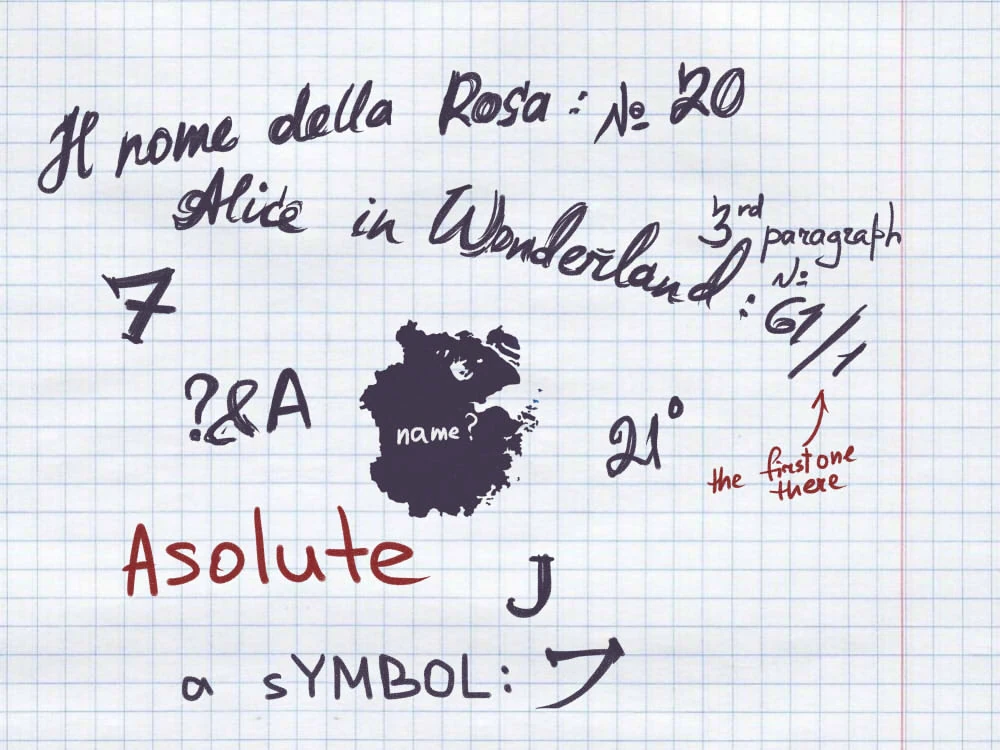 Il nome della Rosa: № 20
Alice in Wonderland:
3rd paragraph
№ 61/1
7
?&A
name?
21°
the first one
there
Asolute
J
a sYMBOL: フ